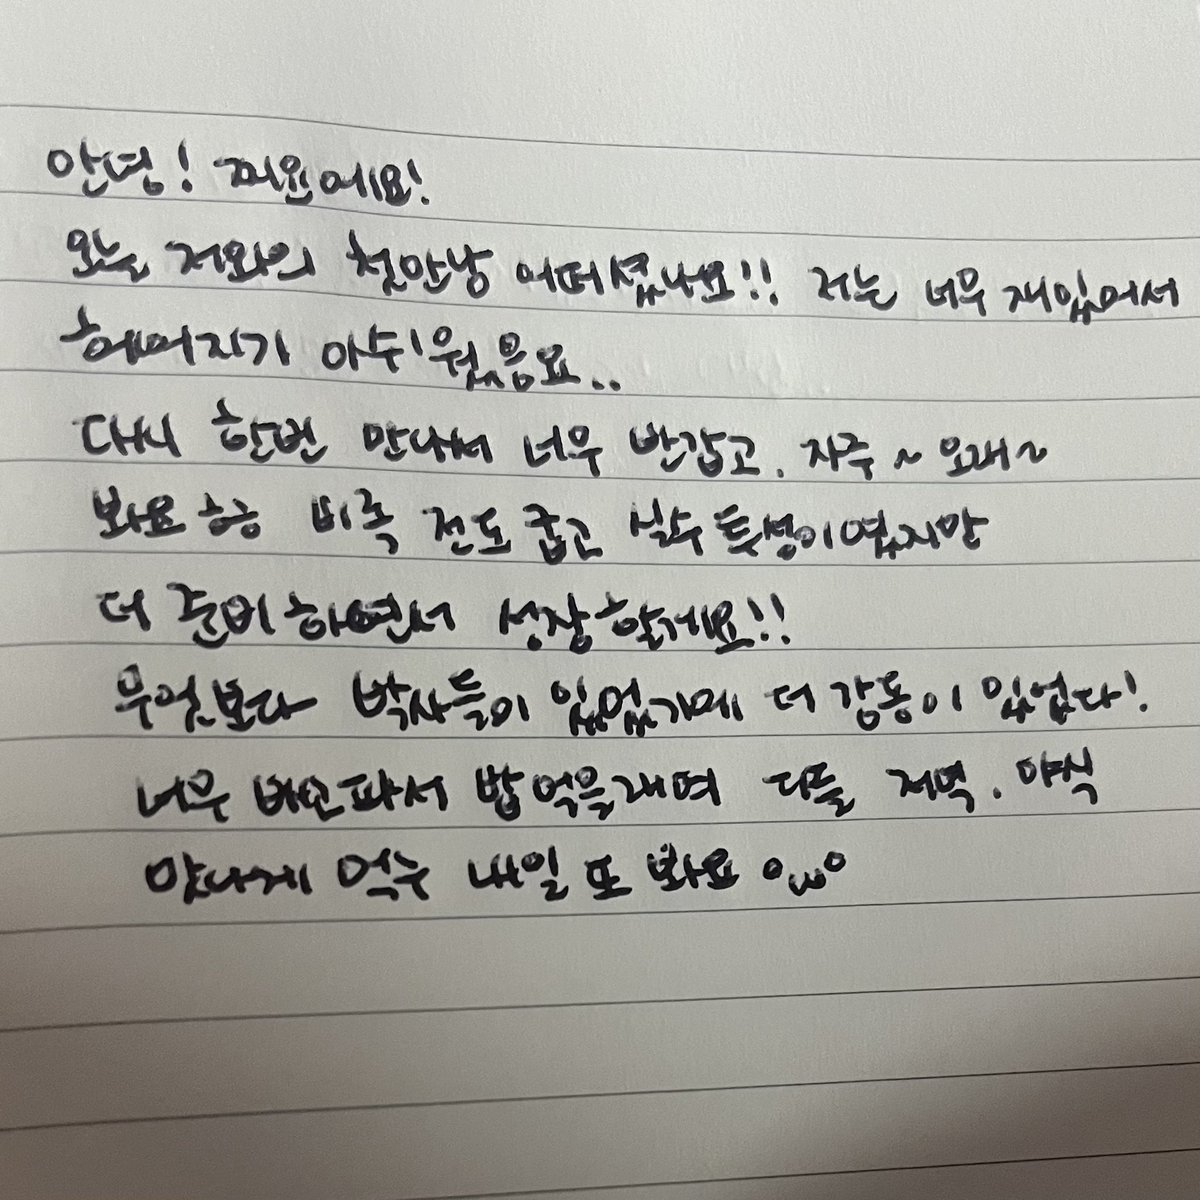 안녕! 찌요에요!
오늘 저와의 첫만남 어떠셨나요!! 저는 너무 재밌어서
헤어지기 아쉬웠음요..
다시 한번 만나서 너무 반갑고, 자주~ 오래~
봐요 ㅎㅎ 비록 전도 굽고 실수 투성이였지만
더 준비하면서 성장할게요!!
무엇보다 박사들이 있었기에 더 감동이 있었다!
너무 배고파서 밥 먹을래며 다들 저녁, 야식
맛나게 먹구 내일 또 봐요